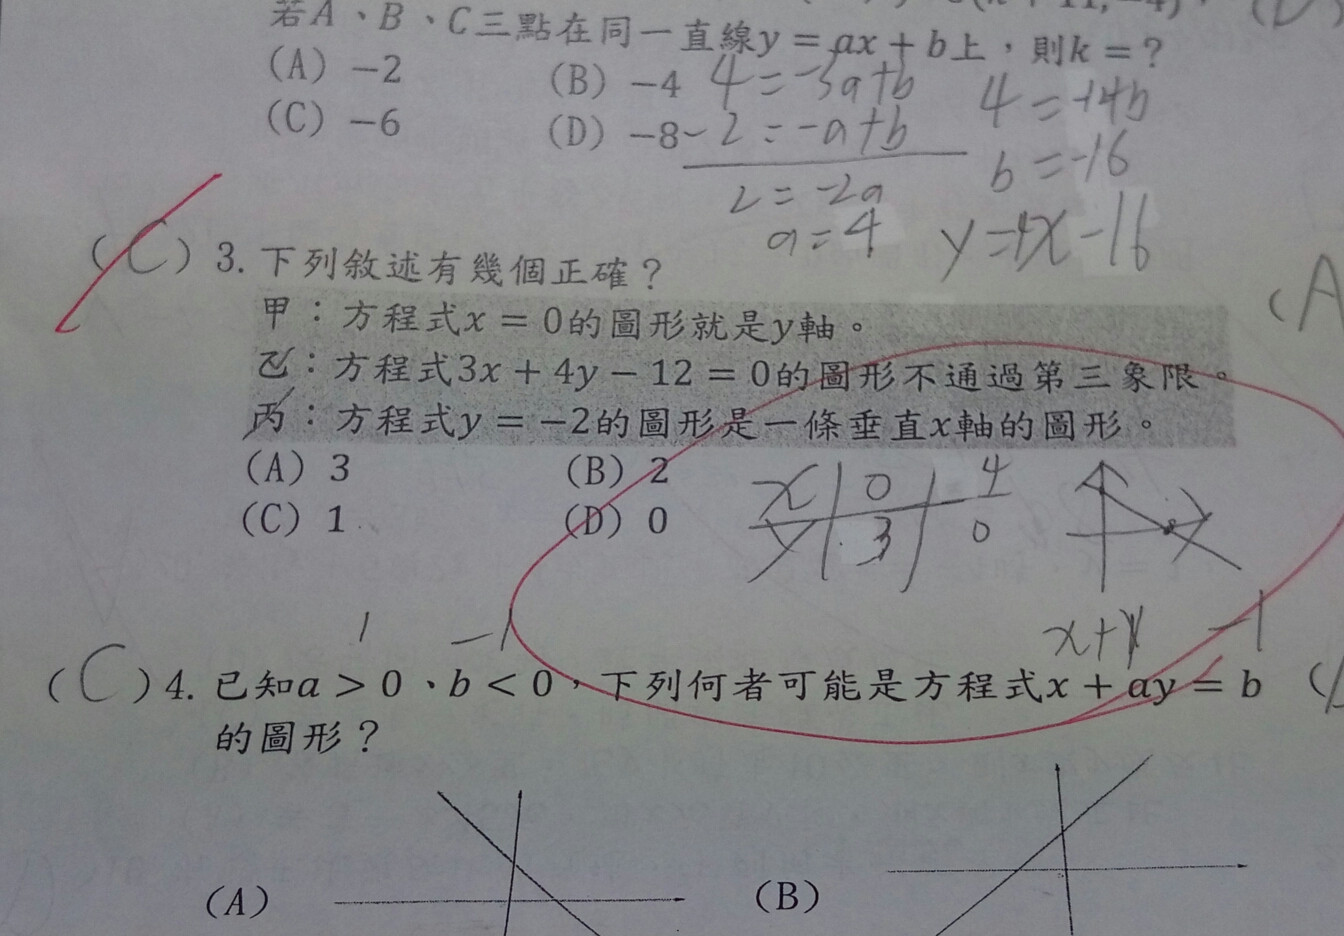 若A、B、C三點在同一直線y = ax + b上，則k = ?
(A) −2
(B) −4
(C) −6
(D) −8
4 = -3a+b
2 = -a+b
2 = -2a
a = 4
b = -16
y = 4x - 16
(C) 3. 下列敘述有幾個正確？
甲：方程式x = 0的圖形就是y軸。
乙：方程式3x + 4y − 12 = 0的圖形不通過第三象限。
丙：方程式y = −2的圖形是一條垂直x軸的圖形。
(A) 3
(B) 2
(C) 1
(D) 0
x 0 4
y 3 0
1 -1
x+y -1
(C) 4. 已知a > 0、b < 0，下列何者可能是方程式x + ay = b
的圖形？
(A)
(B)